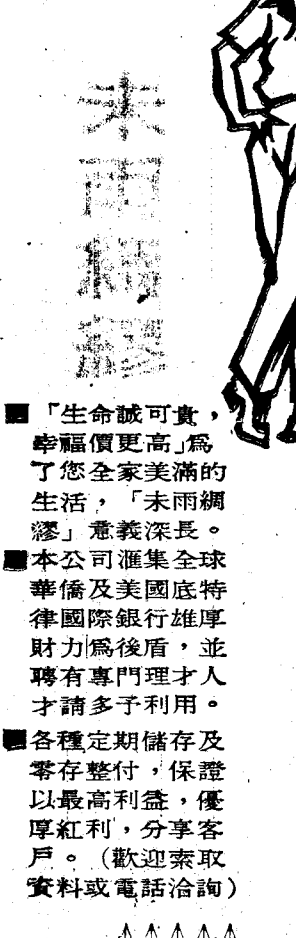 未雨綢繆
■「生命誠可貴，
幸福價更高」為
了您全家美滿的
生活，「未雨綢
繆」意義深長。
■本公司滙集全球
華僑及美國底特
律國際銀行雄厚
財力為後盾，並
聘有專門理才人
才請多予利用。
■各種定期儲存及
零存整付，保證
以最高利益，優
厚紅利，分享客
戶。（歡迎索取
資料或電話洽詢）